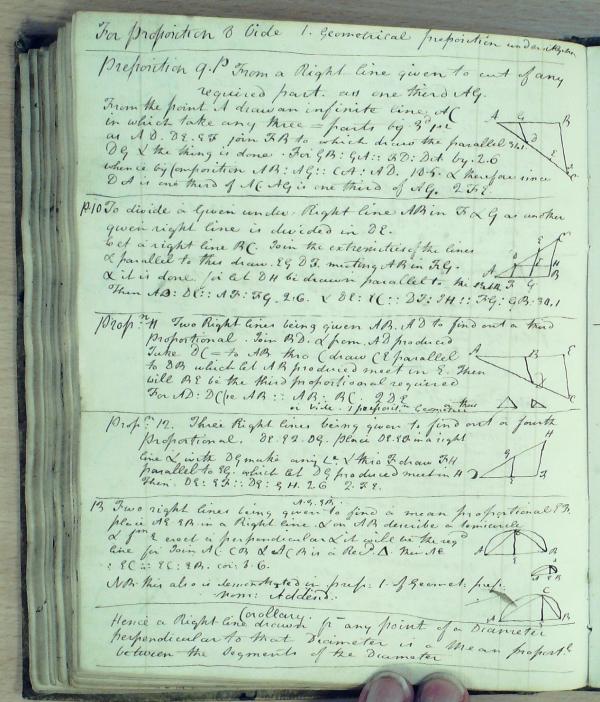 For Proposition 8 Vide 1. Geometrical preposition under
Preposition 9. P From a Right line given to cut of any
required part. as one third AG.
From the point A draw an infinite line AC
in which take any three = parts by 3d 1st
as AD. DE. EF join FB to which draw the parallel 31.1
DG & the thing is done. For GB: GA:: FD: DA by. 2.6
whence by Composition AB: AG:: CA: AD. 18.5. & therefore since
DA is one third of AC AG is one third of AG. Q.F.E.
P.10 To divide a Given under. Right line AB in F & G as another
given right line is divided in DE.
Let a right line BC. Join the extremities of the lines
& parallel to this draw. EG DF. meeting AB in FG.
& it is done. for let DH be drawn parallel to the
Then AD: DE:: AF: FG. 2.6. & DE: EC:: DI: IH:: FG: GB. 34.1
Propn. 11 Two Right lines being given AB. AD to find out a third
Proportional. Join BD. & from AD produced
Take DC = to AB thro C draw CE parallel
to DB which let AB produced meet in E. Then
will BE be the third proportional required
For AD: DC(re AB:: AB: BC. Q D E
or vide. 1 preposit. Geometric
Propn. 12. Three Right lines being given to find out a fourth
proportional. DE. EF. DG. place DE. EF in a right
line & with DG make any Le & thro F draw FH
parallel to EG. which let DG produced meet in H
Then. DE: EF:: DG: GH. 2.6 2.F.E.
AE. EB.
13 Two right lines being given to find a mean proportional EF.
place AE EB in a Right line. & on AB describe a semicircle
& from E erect a perpendicular & it will be the reqd
line for Join AC CB & ACB is a Rect. Δ. then AE
: EC:: EC: EB. cor. 8.6.
NB. this also is demonstrated in prep: 1. of Geomet: prep:
nom: Addend.
Corollary.
Hence a Right line drawn fr any point of a Diameter
perpendicular to that Diameter is a Mean proportl
between the Segments of the Diameter